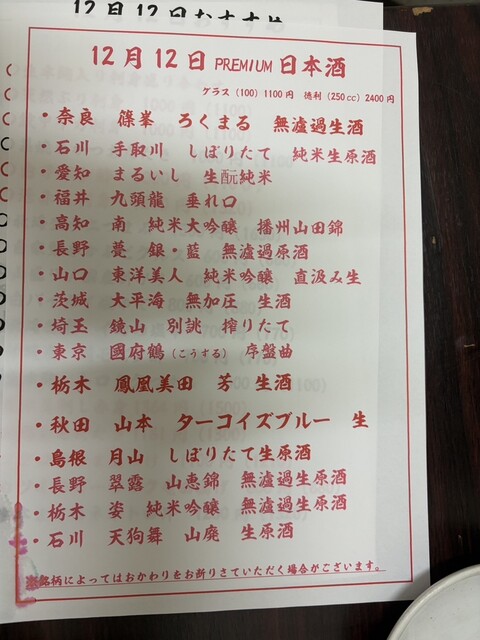 12月12日おすすめ
12月12日 PREMIUM 日本酒
グラス（100）1100円　徳利（250cc）2400円
・奈良　篠峯　ろくまる　無濾過生酒
・石川　手取川　しぼりたて　純米生原酒
・愛知　まるいし　生酛純米
・福井　九頭龍　垂れ口
・高知　南　純米大吟醸　播州山田錦
・長野　甍　銀・藍　無濾過原酒
・山口　東洋美人　純米吟醸　直汲み生
・茨城　大平海　無加圧　生酒
・埼玉　鏡山　別誂　搾りたて
・東京　國府鶴（こうずる）　序盤曲
・栃木　鳳凰美田　芳　生酒
・秋田　山本　ターコイズブルー　生
・島根　月山　しぼりたて生原酒
・長野　翠露　山恵錦　無濾過生原酒
・栃木　姿　純米吟醸　無濾過生原酒
・石川　天狗舞　山廃　生原酒
銘柄によってはおかわりをお断りさていただく場合がございます。